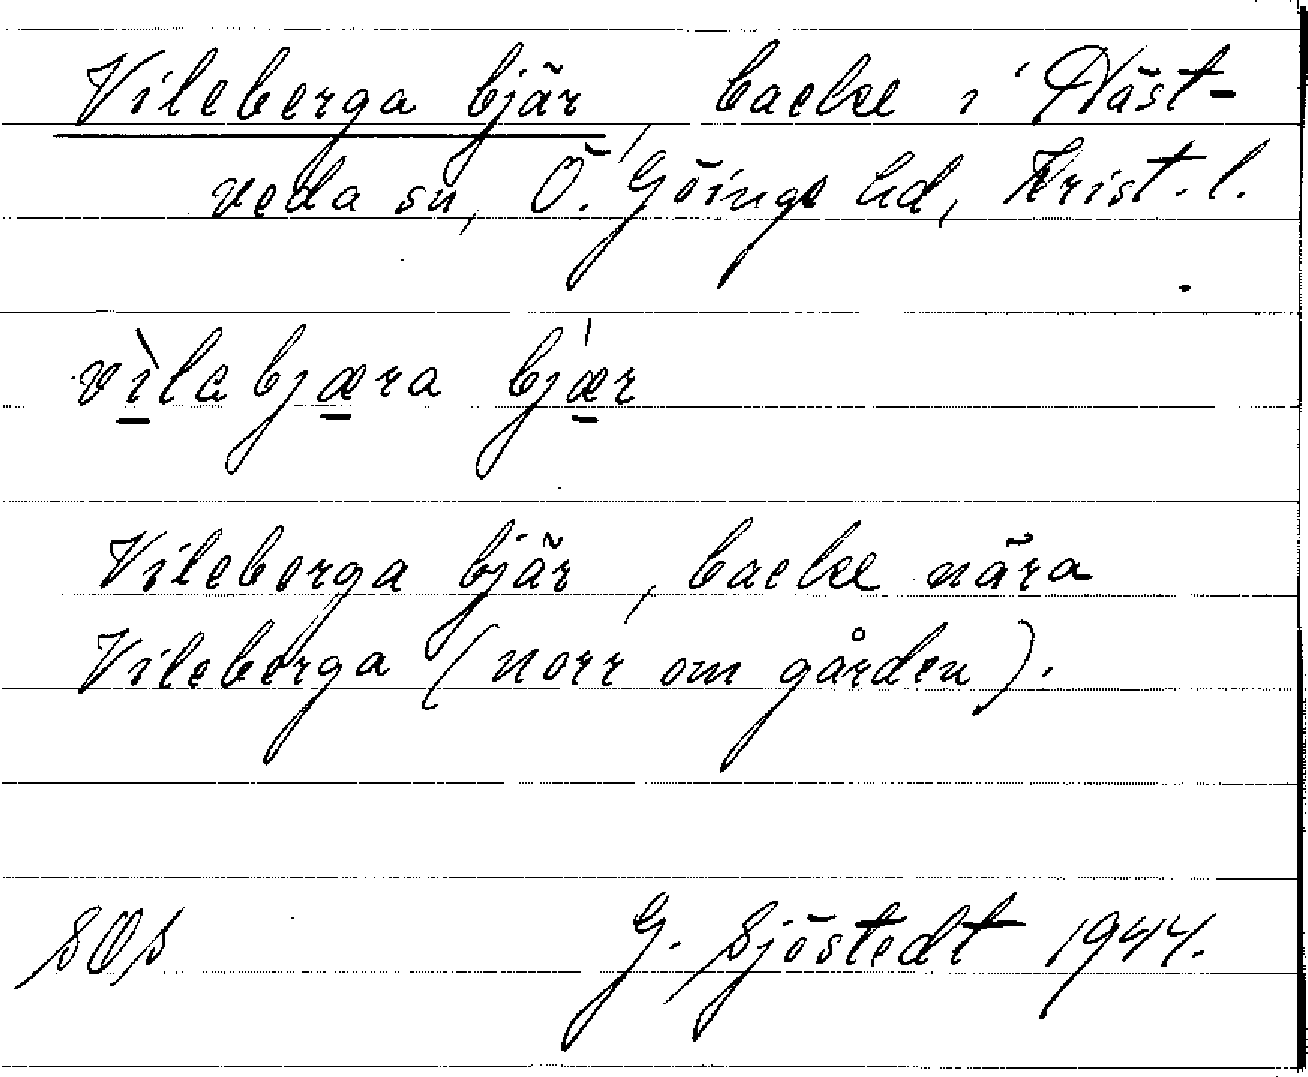 Vileberga bjär, backe i Näst-
veda sn, Ö. Göinge hd, Krist. l.
vìlabjæra bjǽr
Vileberga bjär, backe nära
Vileberga (norr om gården).
SOS G. Sjöstedt 1944.